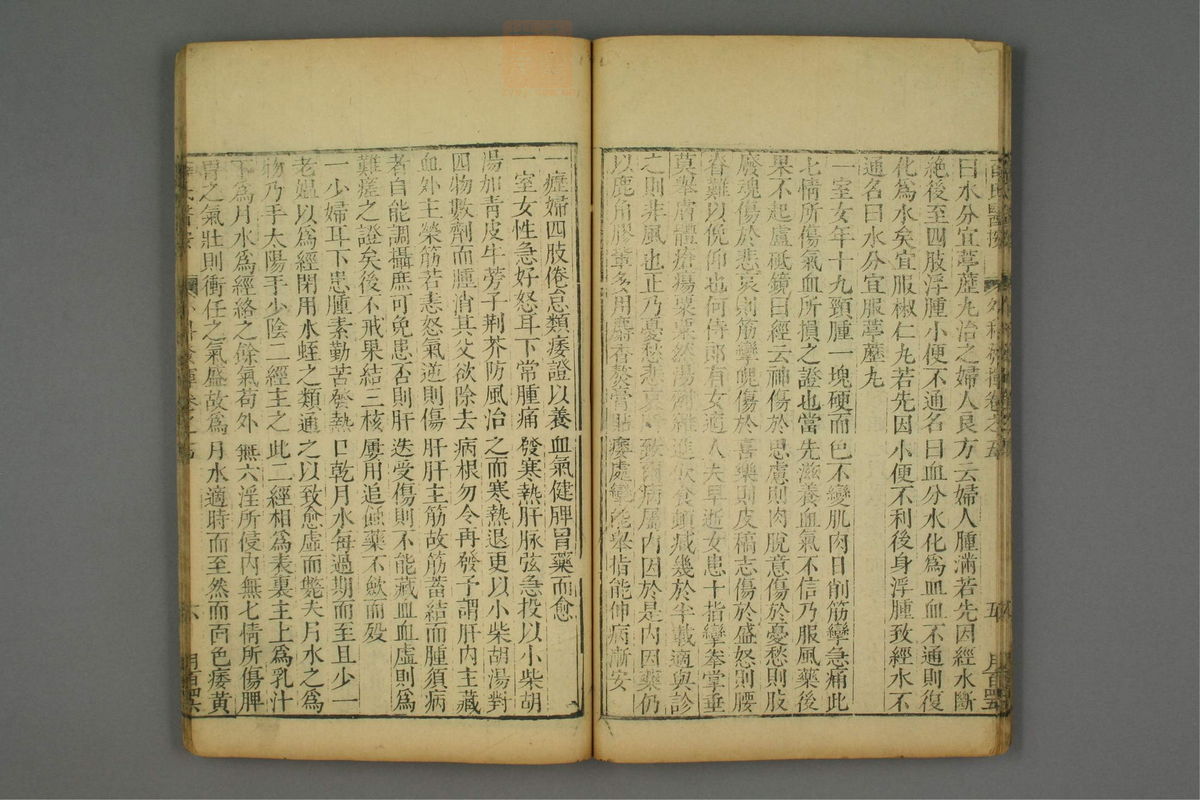 曰水分宜葶藶丸治之婦人良方云婦人腫滿若先因經水斷
絶後至四肢浮腫小便不通名曰血分水化為血血不通則復
化為水矣宜服椒仁丸若先因小便不利後身浮腫致經水不
通名曰水分宜服葶藶丸
一室女年十九頸腫一塊硬而色不變肌肉日削筋攣急痛此
七情所傷氣血所損之證也當先滋養血氣不信乃服風藥後
果不起盧砥鏡曰經云神傷於思慮則肉脫意傷於憂愁則肢
廢魂傷於悲哀則筋攣魄傷於喜樂則皮槁志傷於盛怒則腰
脊難以俛仰也何侍郎有女適人夫早逝女患十指攣拳掌垂
莫舉膚體瘡瘍粟粟然湯劑雜進飲食頓减幾於半載適與診
之則非風也正乃憂愁悲哀所致病屬內因於是內因藥仍
以鹿角膠輩多用麝香熬膏貼痿處攣能舉指能伸病漸安
五
一瘧婦四肢倦怠類痿證以養血氣健脾胃藥而愈
一室女性急好怒耳下常腫痛發寒熱肝脉弦急投以小柴胡
湯加靑皮牛蒡子荆芥防風治之而寒熱退更以小柴胡湯對
四物數劑而腫消其父欲除去病根勿令再發予謂肝內主藏
血外主榮筋若恚怒氣逆則傷肝肝主筋故筋蓄結而腫須病
者自能調攝庶可免患否則肝迭受傷則不能藏血血虛則為
難瘥之證矣後不戒果結三核屢用追蝕藥不歛而歿
一少婦耳下患腫素勤苦發熱口乾月水每過期而至且少一
老媪以為經閉用水蛭之類通之以致愈虛而斃夫月水之為
物乃手太陽手少陰二經主之此二經相為表裏主上為乳汁
下為月水為經絡之餘氣苟外無六淫所侵內無七情所傷脾
胃之氣壯則衝任之氣盛故為月水適時而至然而面色痿黃
六